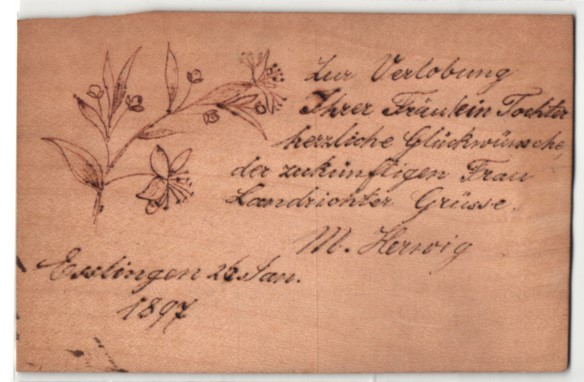 Zur Verlobung
Ihrer Fräulein Tochter
herzliche Glückwünsche,
der zukünftigen Frau
Landrichter Grüsse.
M. Herwig
Esslingen 26 Jan.
1897